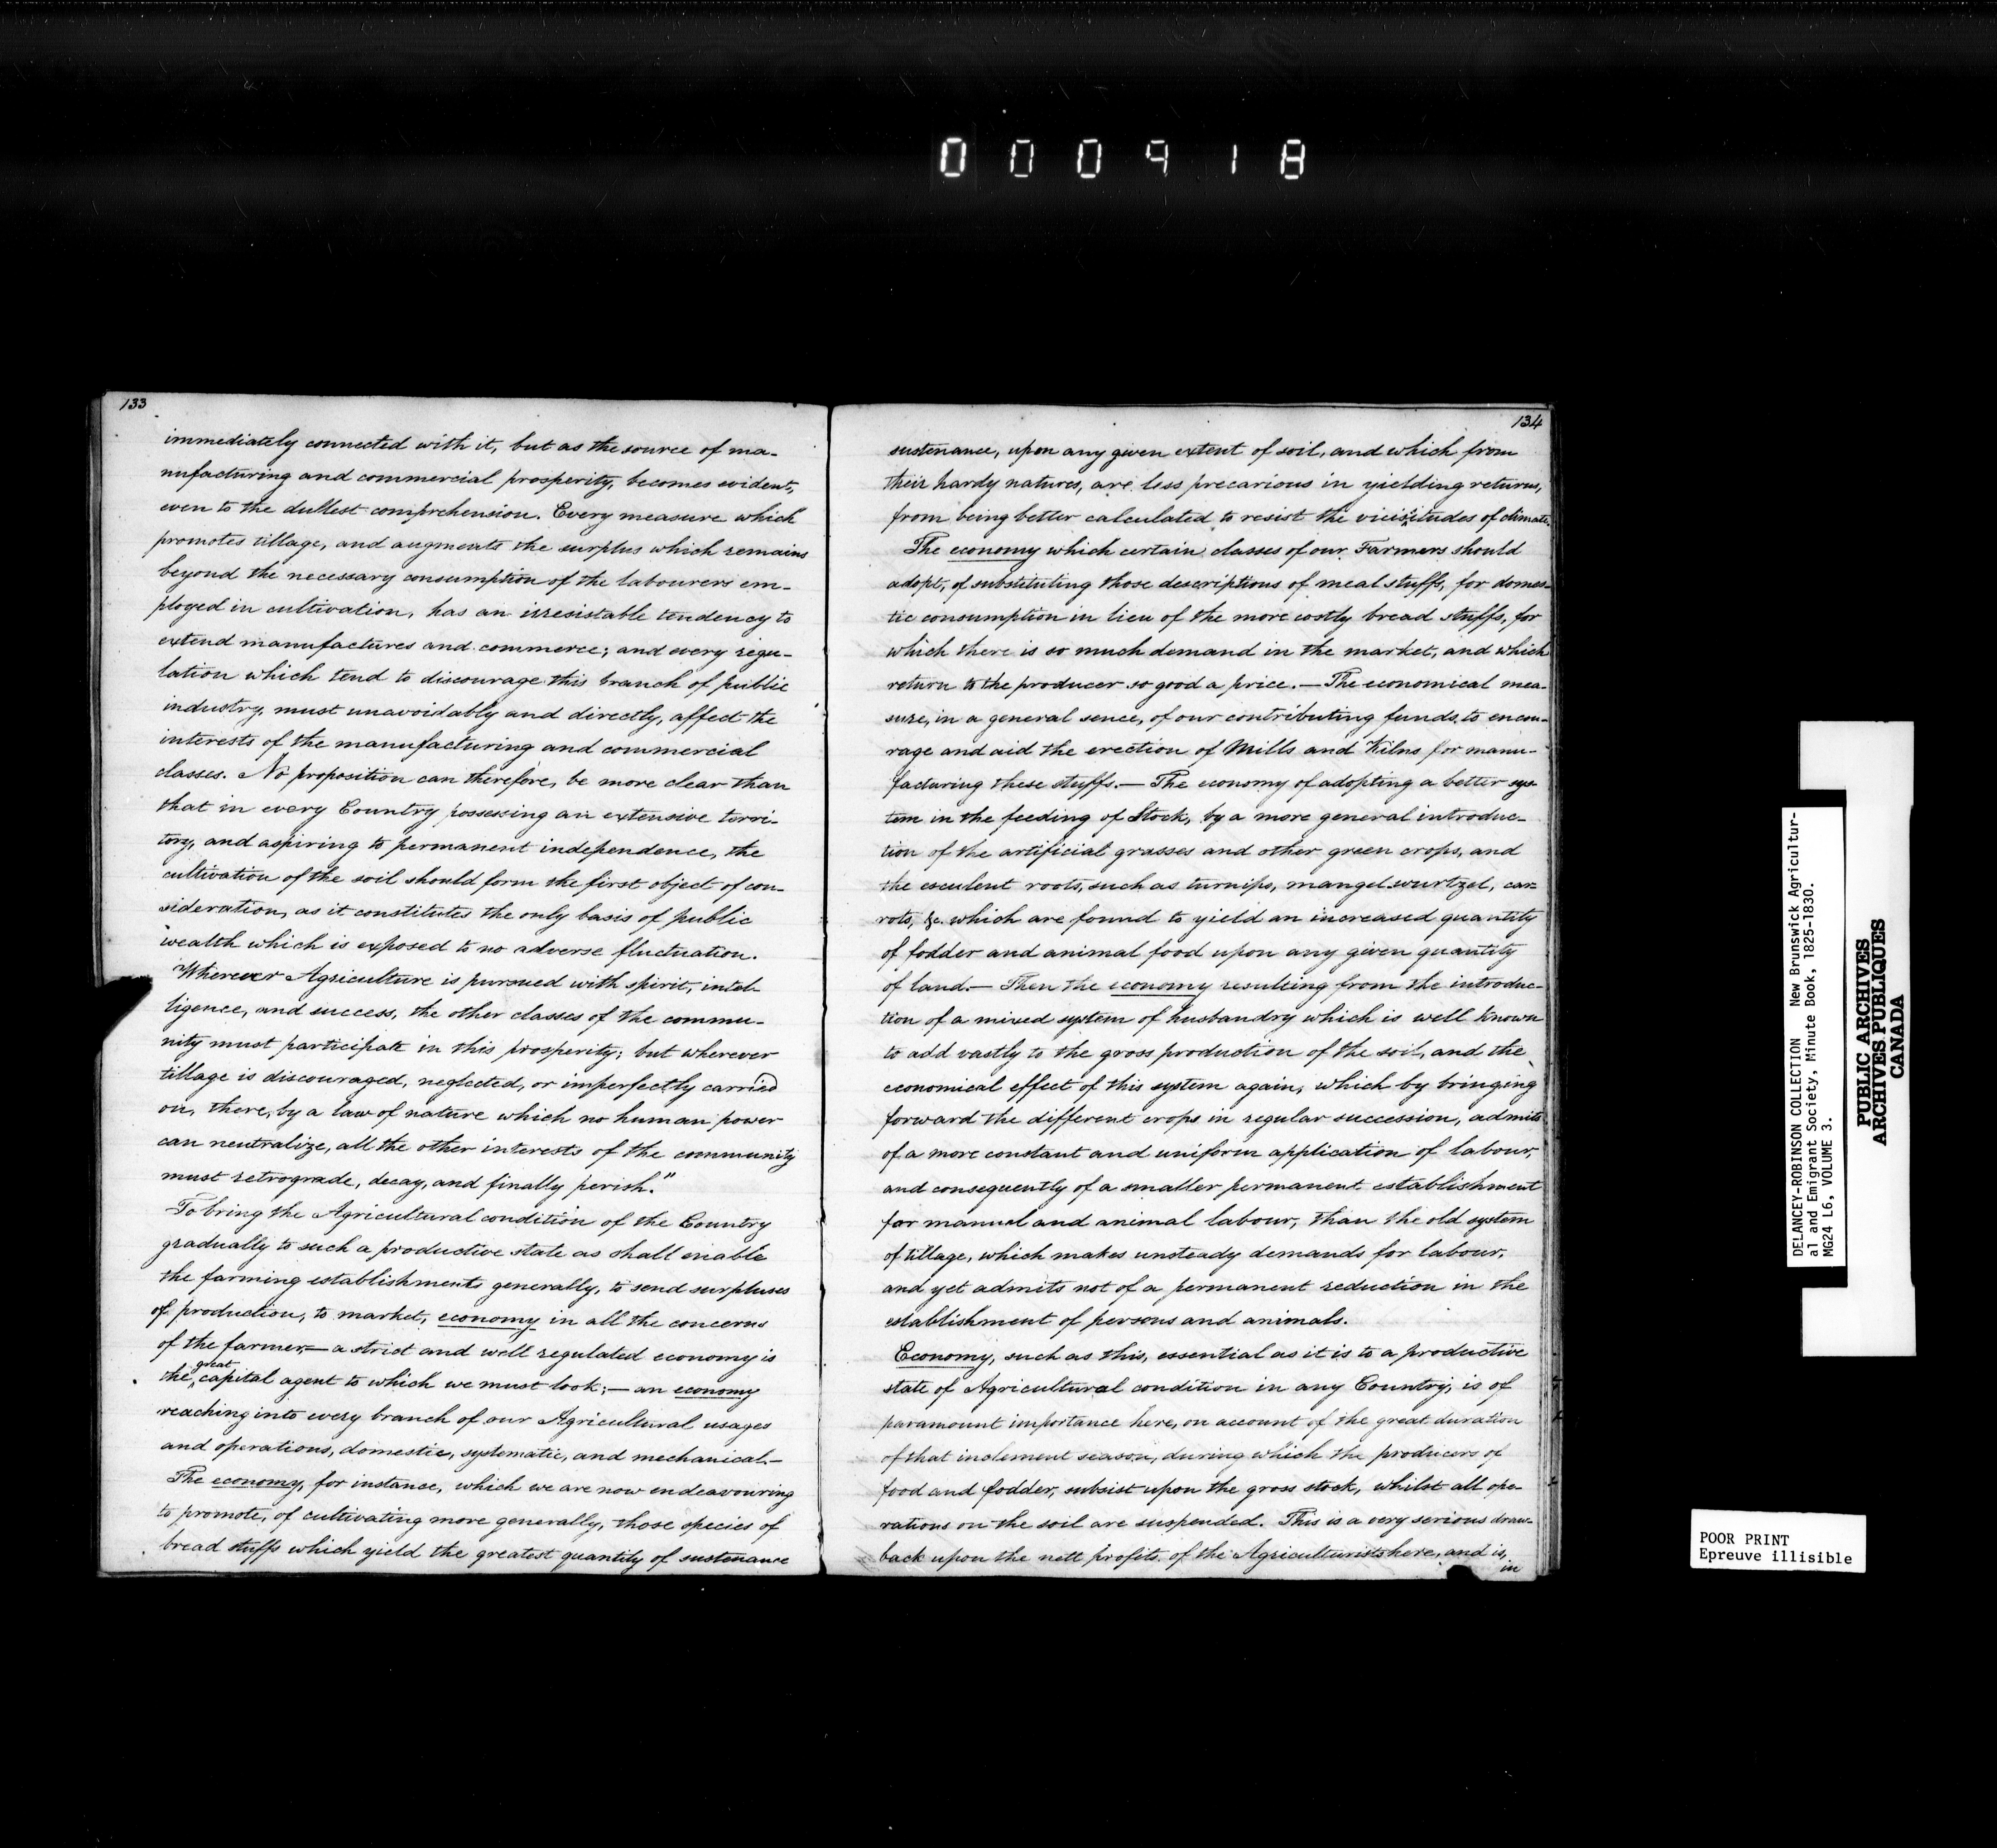 000918
133
immediately connected with it, but as the source of ma-
nufacturing and commercial prosperity, becomes evident,
even to the dullest comprehension. Every measure which
promotes tillage, and augments the surplus which remains
beyond the necessary consumption of the labourers em-
ployed in cultivation, has an irresistable tendency to
extend manufactures and commerce; and every regu-
lation which tend to discourage this branch of public
industry, must unavoidably and directly, affect the
interests of the manufacturing and commercial
classes. No proposition can therefore, be more clear than
that in every Country possessing an extensive terri-
tory, and aspiring to permanent independence, the
cultivation of the soil should form the first object of con-
sideration, as it constitutes the only basis of public
wealth which is exposed to no adverse fluctuation.
"Wherever Agriculture is pursued with spirit, intel-
ligence, and success, the other classes of the commu-
nity must participate in this prosperity; but wherever
tillage is discouraged, neglected, or imperfectly carried
on, there, by a law of nature which no human power
can neutralize, all the other interests of the community
must retrograde, decay, and finally perish."
To bring the Agricultural condition of the Country
gradually to such a productive state as shall enable
the farming establishments generally, to send surpluses
of production, to market, economy in all the concerns
of the farmer,— a strict and well regulated economy is
the great capital agent to which we must look;— an economy
reaching into every branch of our Agricultural usages
and operations, domestic, systematic, and mechanical.—
The economy, for instance, which we are now endeavouring
to promote, of cultivating more generally, those species of
bread stuffs which yield the greatest quantity of sustenance
134
sustenance, upon any given extent of soil, and which from
their hardy natures, are less precarious in yielding returns,
from being better calculated to resist the vicissitudes of climate.
The economy which certain classes of our Farmers should
adopt, of substituting those descriptions of meal stuffs, for domes-
tic consumption in lieu of the more costly bread stuffs, for
which there is so much demand in the market, and which
return to the producer so good a price.— The economical mea-
sure, in a general sence, of our contributing funds to encou-
rage and aid the erection of Mills and Kilns for manu-
facturing these stuffs.— The economy of adopting a better sys-
tem in the feeding of Stock, by a more general introduc-
tion of the artificial grasses and other green crops, and
the esculent roots, such as turnips, mangel wurtzel, car-
rots, &c. which are found to yield an increased quantity
of fodder and animal food upon any given quantity
of land.— Then the economy resulting from the introduc-
tion of a mixed system of husbandry which is well known
to add vastly to the gross production of the soil, and the
economical effect of this system again, which by bringing
forward the different crops in regular succession, admits
of a more constant and uniform application of labour,
and consequently of a smaller permanent establishment
for manual and animal labour, than the old system
of tillage, which makes unsteady demands for labour,
and yet admits not of a permanent reduction in the
establishment of persons and animals.
Economy, such as this, essential as it is to a productive
state of Agricultural condition in any Country, is of
paramount importance here, on account of the great duration
of that inclement season, during which the producers of
food and fodder, subsist upon the gross stock, whilst all ope-
rations on the soil are suspended. This is a very serious draw-
back upon the nett profits of the Agriculturists here, and is,
in
DELANCEY-ROBINSON COLLECTION New Brunswick Agricultur-
al and Emigrant Society, Minute Book, 1825-1830.
MG24 L6, VOLUME 3.
PUBLIC ARCHIVES
ARCHIVES PUBLIQUES
CANADA
POOR PRINT
Epreuve illisible